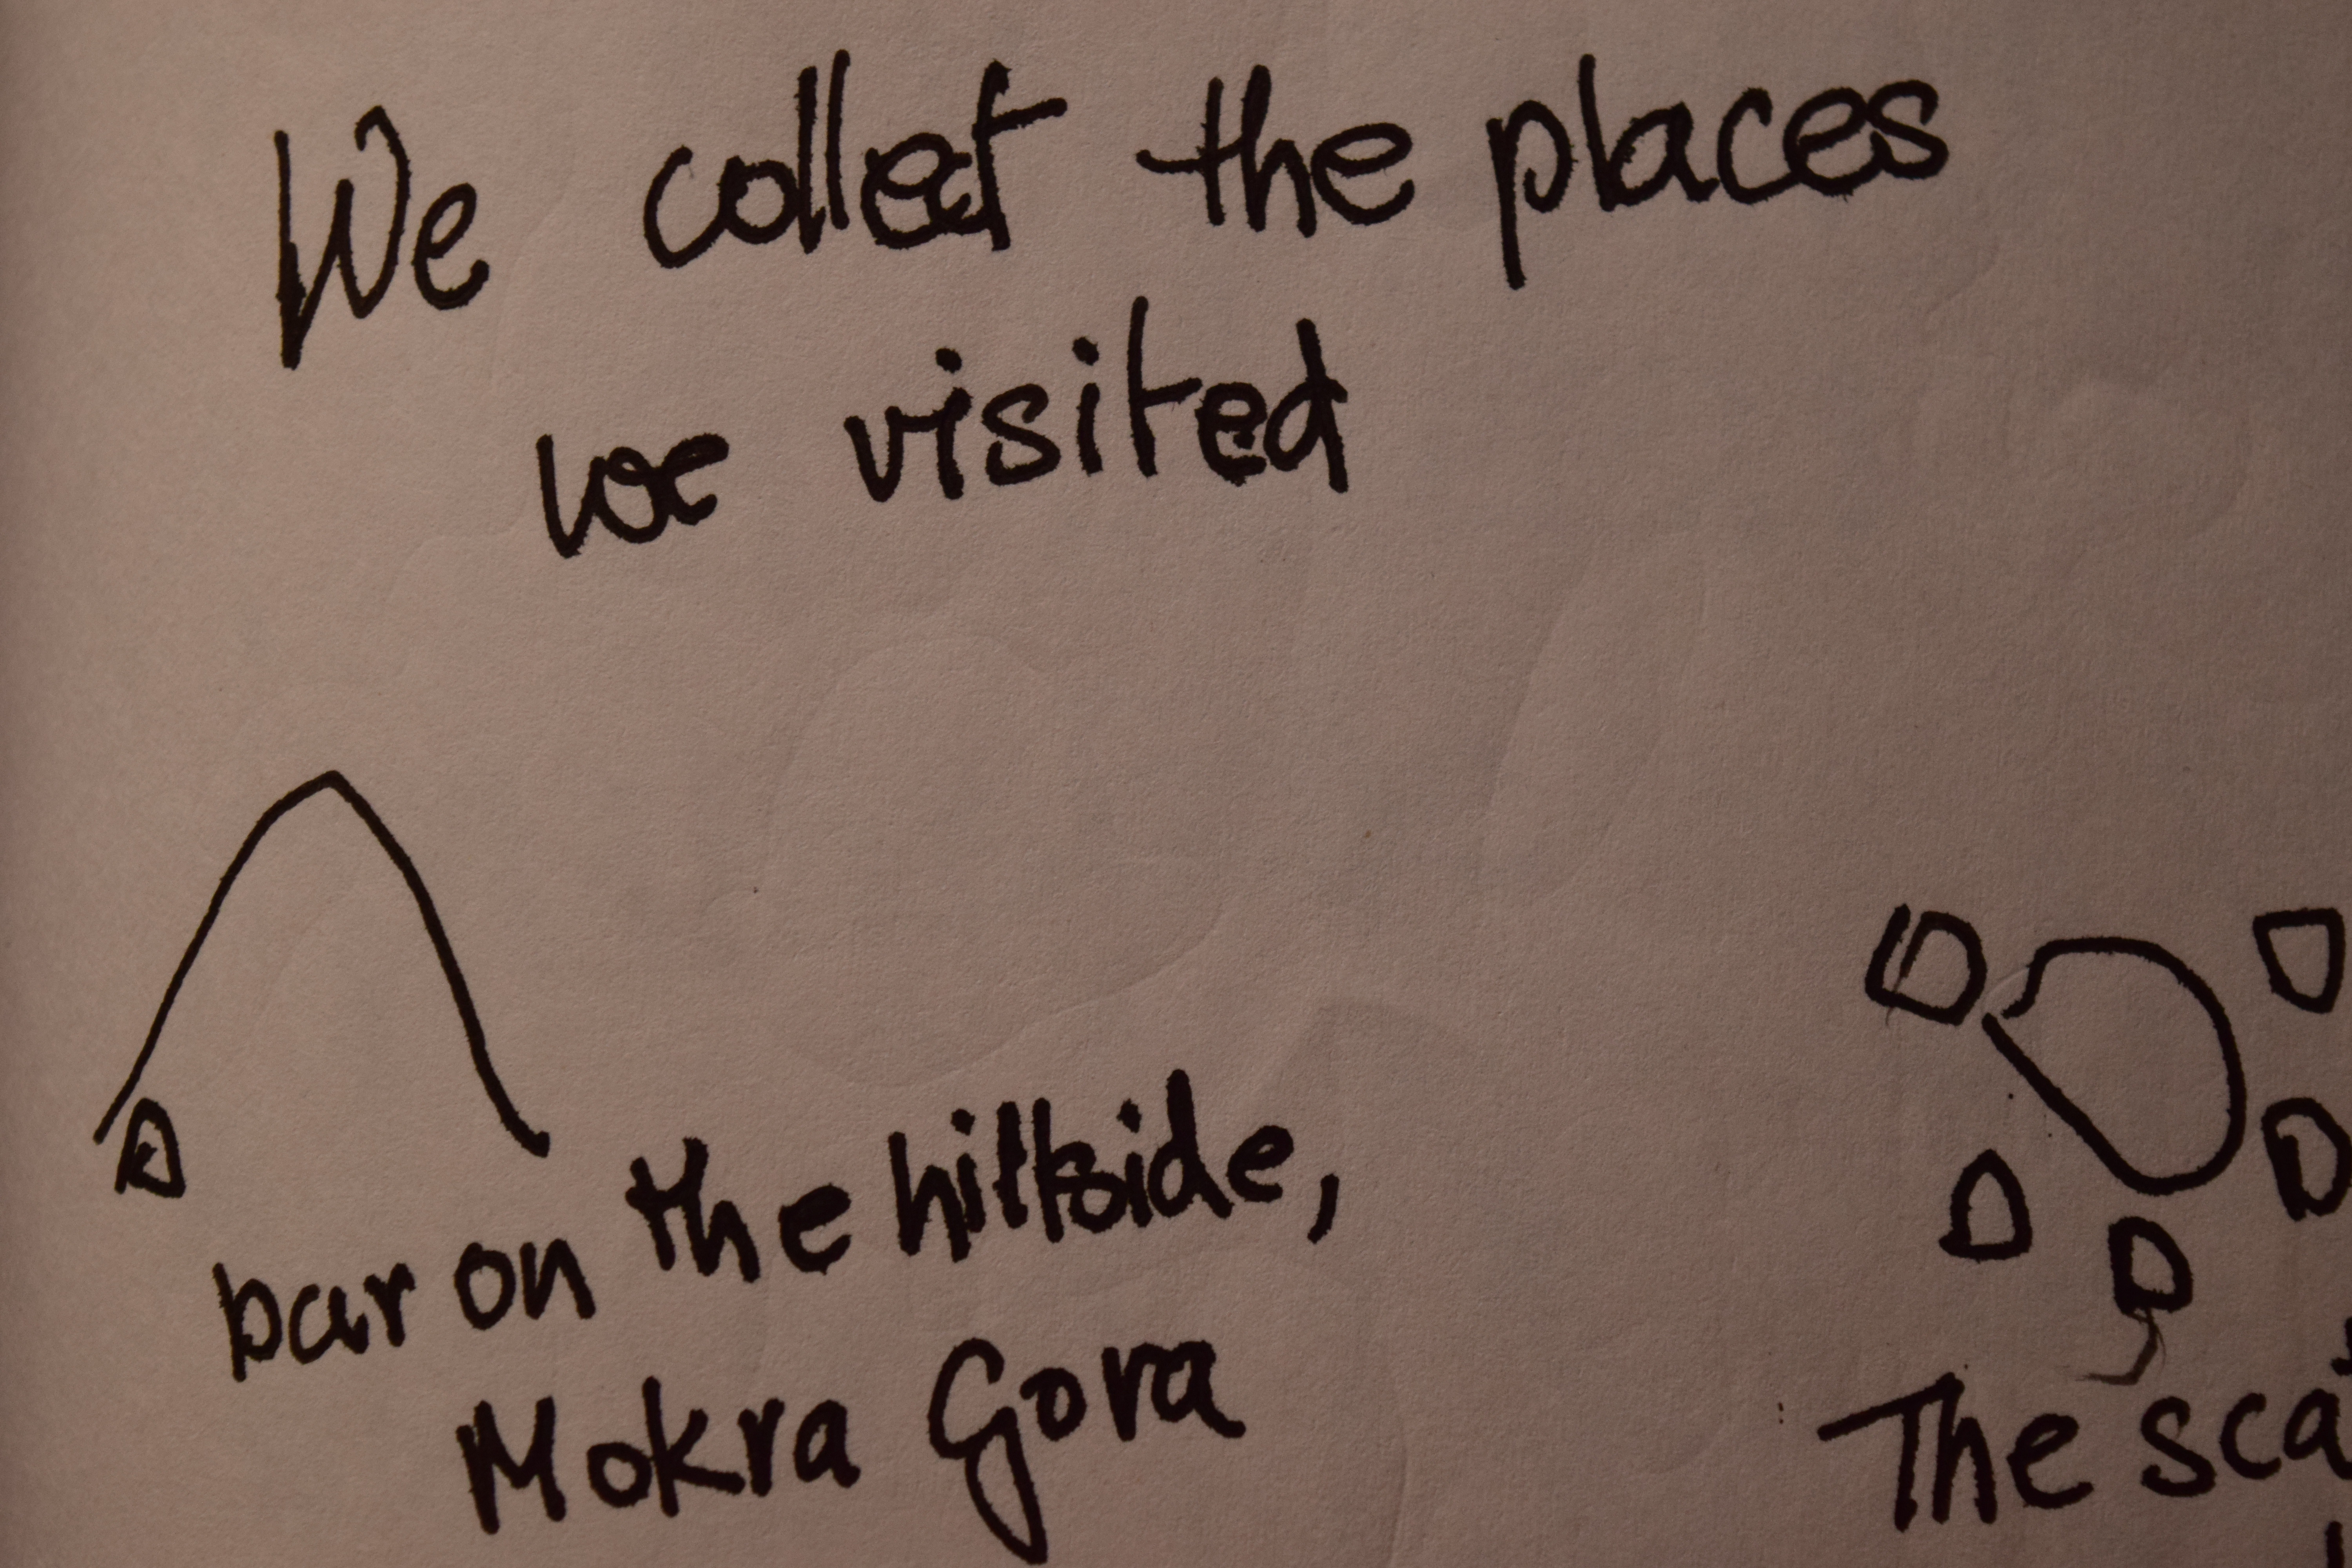 We collect the places
we visited
bar on the hillside,
Mokra Gora
The